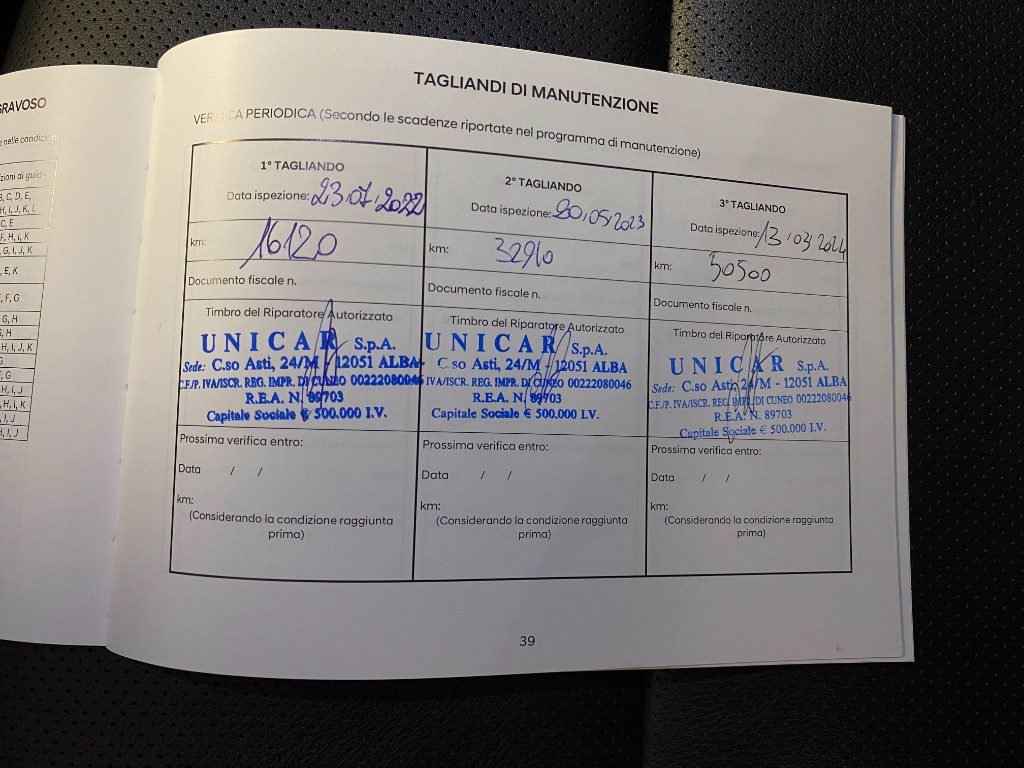 GRAVOSO
nelle condizioni
zioni di guid
B, C, D, E,
H, I, J, K, L
C, E
F, H, I, K
G, I, J, K
E, K
E, F, G
G, H
G, H
H, I, J, K
G
F, G
H, I, J
H, I, K
I, J
H, I, J
TAGLIANDI DI MANUTENZIONE
VERIFICA PERIODICA (Secondo le scadenze riportate nel programma di manutenzione)
1° TAGLIANDO
Data ispezione: 23.07.2022
km: 16120
Documento fiscale n.
Timbro del Riparatore Autorizzato
UNICAR S.p.A.
Sede: C.so Asti, 24/M - 12051 ALBA
C.F./P. IVA/ISCR. REG. IMPR. DI CUNEO 00222080046
R.E.A. N. 89703
Capitale Sociale € 500.000 I.V.
Prossima verifica entro:
Data / /
km:
(Considerando la condizione raggiunta
prima)
2° TAGLIANDO
Data ispezione: 20.05.2023
km: 32910
Documento fiscale n.
Timbro del Riparatore Autorizzato
UNICAR S.p.A.
C.so Asti, 24/M - 12051 ALBA
IVA/ISCR. REG. IMPR. DI CUNEO 00222080046
R.E.A. N. 89703
Capitale Sociale € 500.000 I.V.
Prossima verifica entro:
Data / /
km:
(Considerando la condizione raggiunta
prima)
3° TAGLIANDO
Data ispezione: 13.03.2024
km: 50500
Documento fiscale n.
Timbro del Riparatore Autorizzato
UNICAR S.p.A.
Sede: C.so Asti, 24/M - 12051 ALBA
C.F./P. IVA/ISCR. REG. IMPR. DI CUNEO 00222080046
R.E.A. N. 89703
Capitale Sociale € 500.000 I.V.
Prossima verifica entro:
Data / /
km:
(Considerando la condizione raggiunta
prima)
39